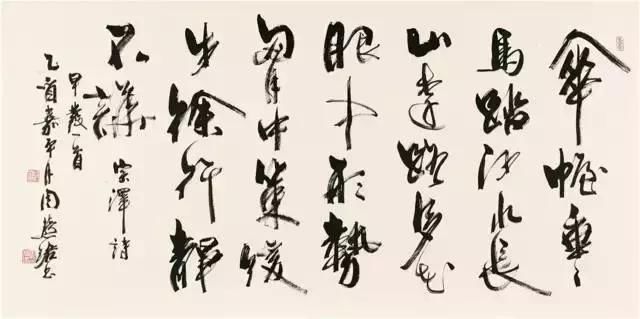 傘幄垂々
馬踏沙水長
山遠路多花
眼中形勢
胷中策緩
步徐行靜
不譁 宗澤詩
早發一首
乙酉嘉平月周慧珺書